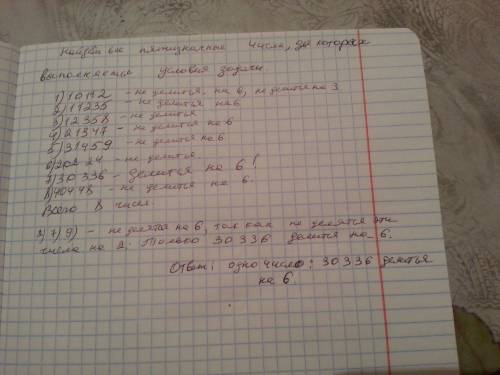 Найдём все пятизначные числа, для которых
выполняются условия задачи.
1) 10112 - не делится на 6, не делится на 3
2) 11235 - не делится на 6
3) 12358 - не делится
4) 21347 - не делится на 6
5) 31459 - не делится на 6
6) 20224 - не делится
7) 30336 - делится на 6!
8) 40448 - не делится на 6.
Всего 8 чисел.
7) 9) - не делятся на 6, так как не делятся эти
числа на 2. Только 30336 делится на 6.
Ответ: одно число: 30336 делится
на 6.